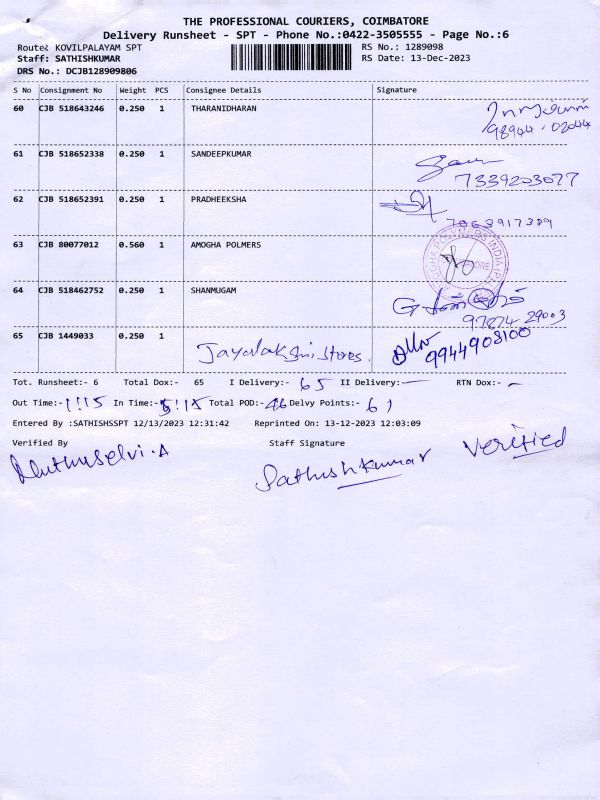 THE PROFESSIONAL COURIERS, COIMBATORE
Delivery Runsheet - SPT - Phone No.:0422-3505555 - Page No.:6
Route: KOVILPALAYAM SPT RS No.: 1289098
Staff: SATHISHKUMAR RS Date: 13-Dec-2023
DRS No.: DCJB128909806
S No Consignment No Weight PCS Consignee Details Signature
60 CJB 518643246 0.250 1 THARANIDHARAN
98944-02044
61 CJB 518652338 0.250 1 SANDEEPKUMAR
7339203077
62 CJB 518652391 0.250 1 PRADHEEKSHA
63 CJB 80077012 0.560 1 AMOGHA POLMERS
64 CJB 518462752 0.250 1 SHANMUGAM
97874-29003
65 CJB 1449033 0.250 1 Jayalakshmi stores. 9944908100
Tot. Runsheet:- 6 Total Dox:- 65 I Delivery:- 65 II Delivery:- — RTN Dox:- —
Out Time:- 1:15 In Time:- 5:15 Total POD:- 46 Delvy Points:- 61
Entered By :SATHISHSSPT 12/13/2023 12:31:42 Reprinted On: 13-12-2023 12:03:09
Verified By Staff Signature Verified
Muthuselvi.A Sathishkumar